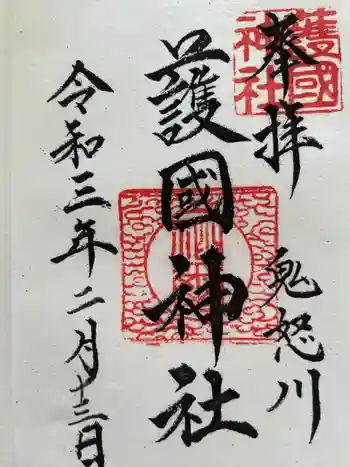 護國神社
奉拝
鬼怒川
護國神社
令和三年二月十三日